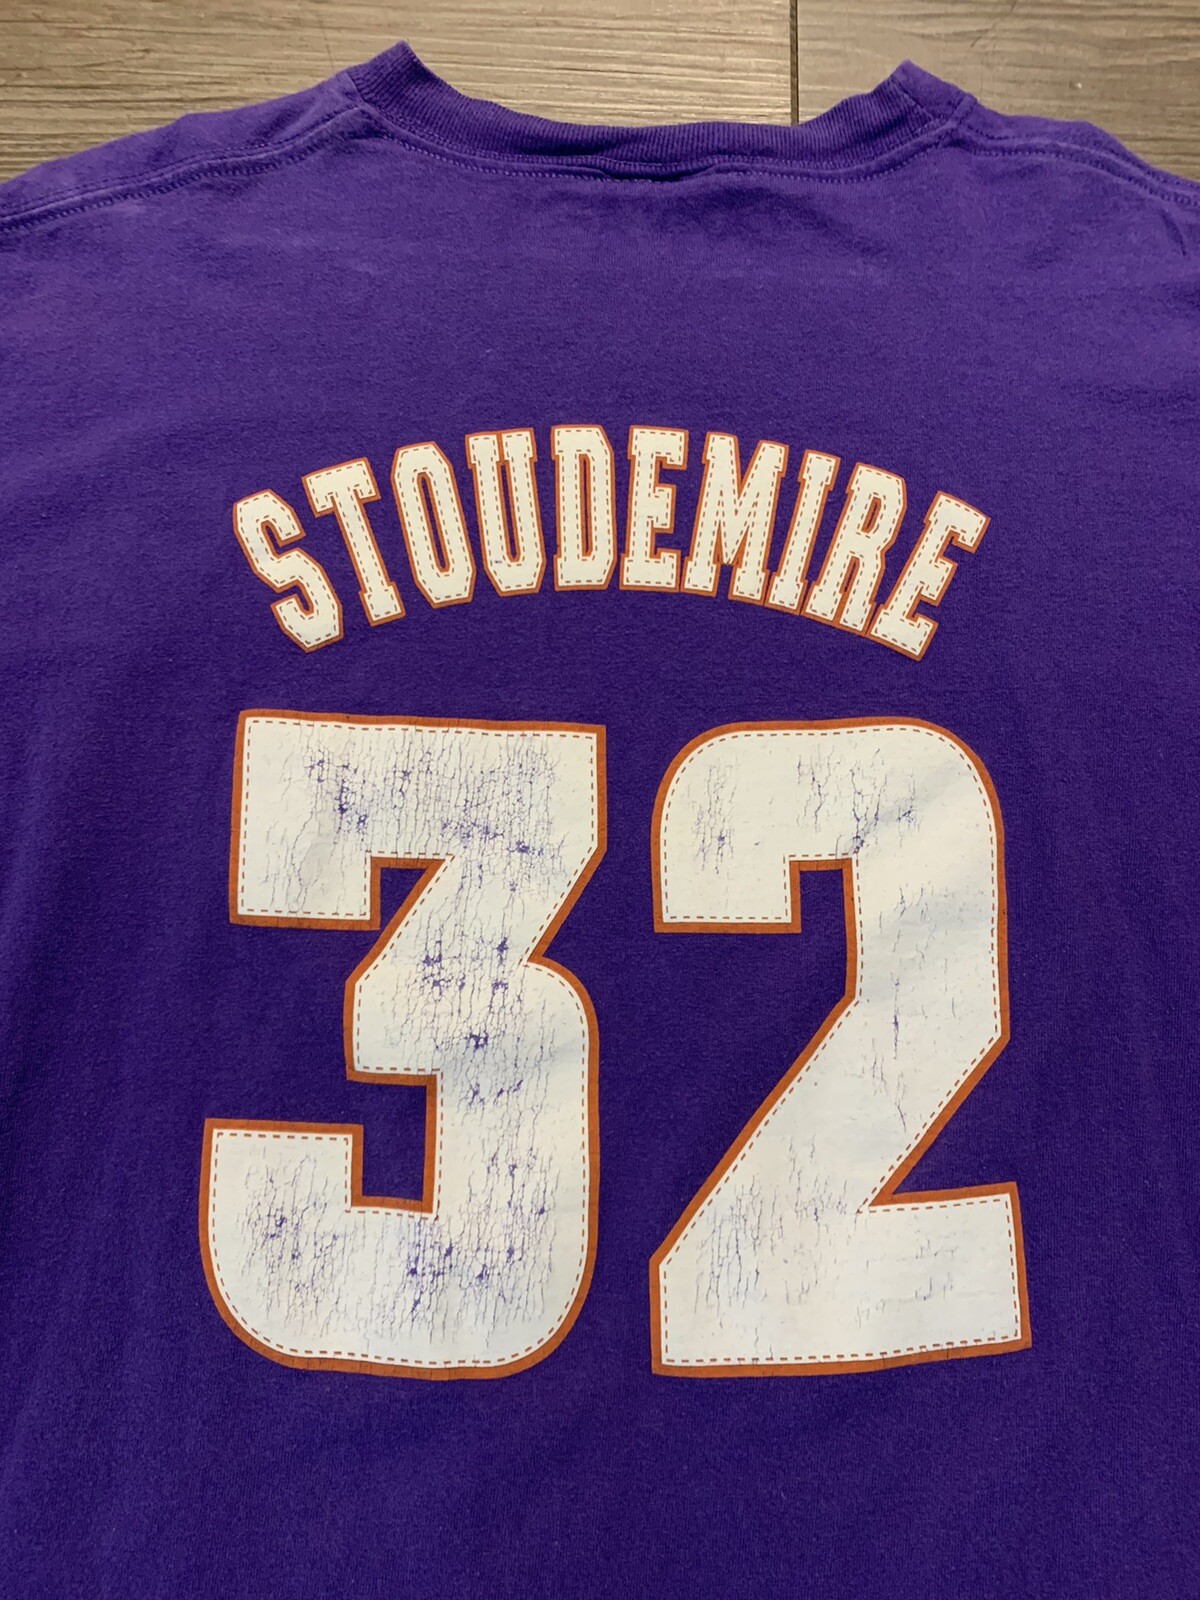 STOUDEMIRE
32